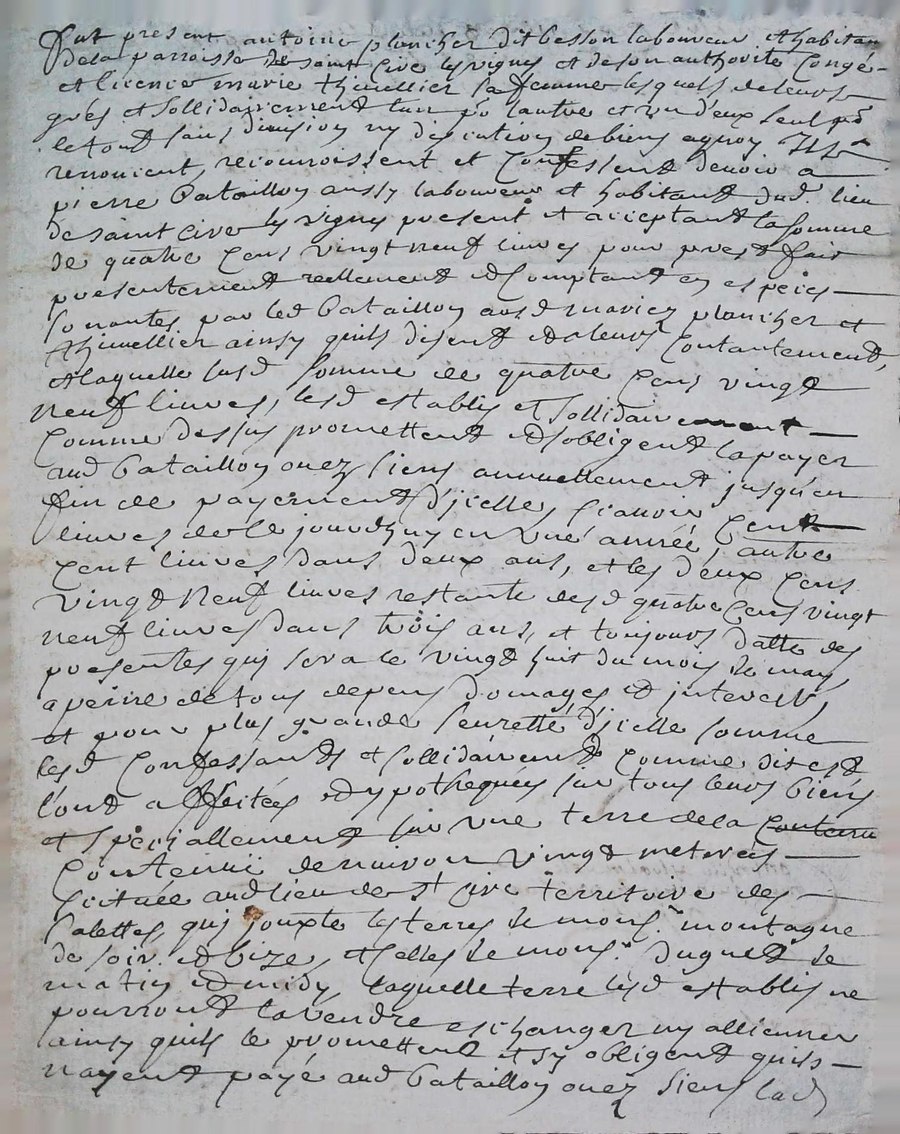 fut present antoine plancher dit besson laboureur et habitan
de la parroisse de saint cire les vignes et de son authorité Congé
et licence marie thiuellier sa femme lesquels de leurs
grés et sollidairement l'un po.r l'autre et un d'eux seul po.r
le tout sans division ny discution de biens a quoy Ils
renoncent, reconnoissent et Confessent devoir a
pierre bataillon aussy laboureur et habitant dud. lieu
de saint cire les vignes present et acceptant la somme
de quatre cens vingt neuf livres pour prest fait
presentement reellement et Comptant en espéces
sonantes par led bataillon ausd mariez plancher et
thiuellier ainsy quils disent et a leurs Contantement,
et laquelle susd somme de quatre cens vingt
neuf livres, lesd establis et sollidairement
Comme dessus promettent et s'obligent la payer
aud bataillon ou ez siens annuellement jusqu'en
fin de payement d'jcelle, scavoir Cent
livres de ce jourdhuy en une année, autre
cent livres dans deux ans, et les deux cens
vingt neuf livres restante desd quatre cens vingt
neuf livres dans trois ans, et toujours datte des
presentes quj sera le vingt huit du mois de may,
a peine de tous depens domages et jnterests,
et pour plus grande seurette d'jcelle somme
lesd Confessants et sollidairement Comme dit est
l'ont affectées et ypothequés sur tous leurs biens
et spécjallement sur une terre de la contenu
Contenüe denuiron vingt meterées
scituée aud lieu de s.t cire territoire des
palettes quj jouxte les terres de mons.r montagne
de soir et bize, et celles de mons.r duguet de
matin et midy, laquelle terre lesd establis ne
pourront la vendre eschanger ny allienner
ainsy quils le promettent et sy obligent quils
nayent payé aud bataillon ou ez siens lad